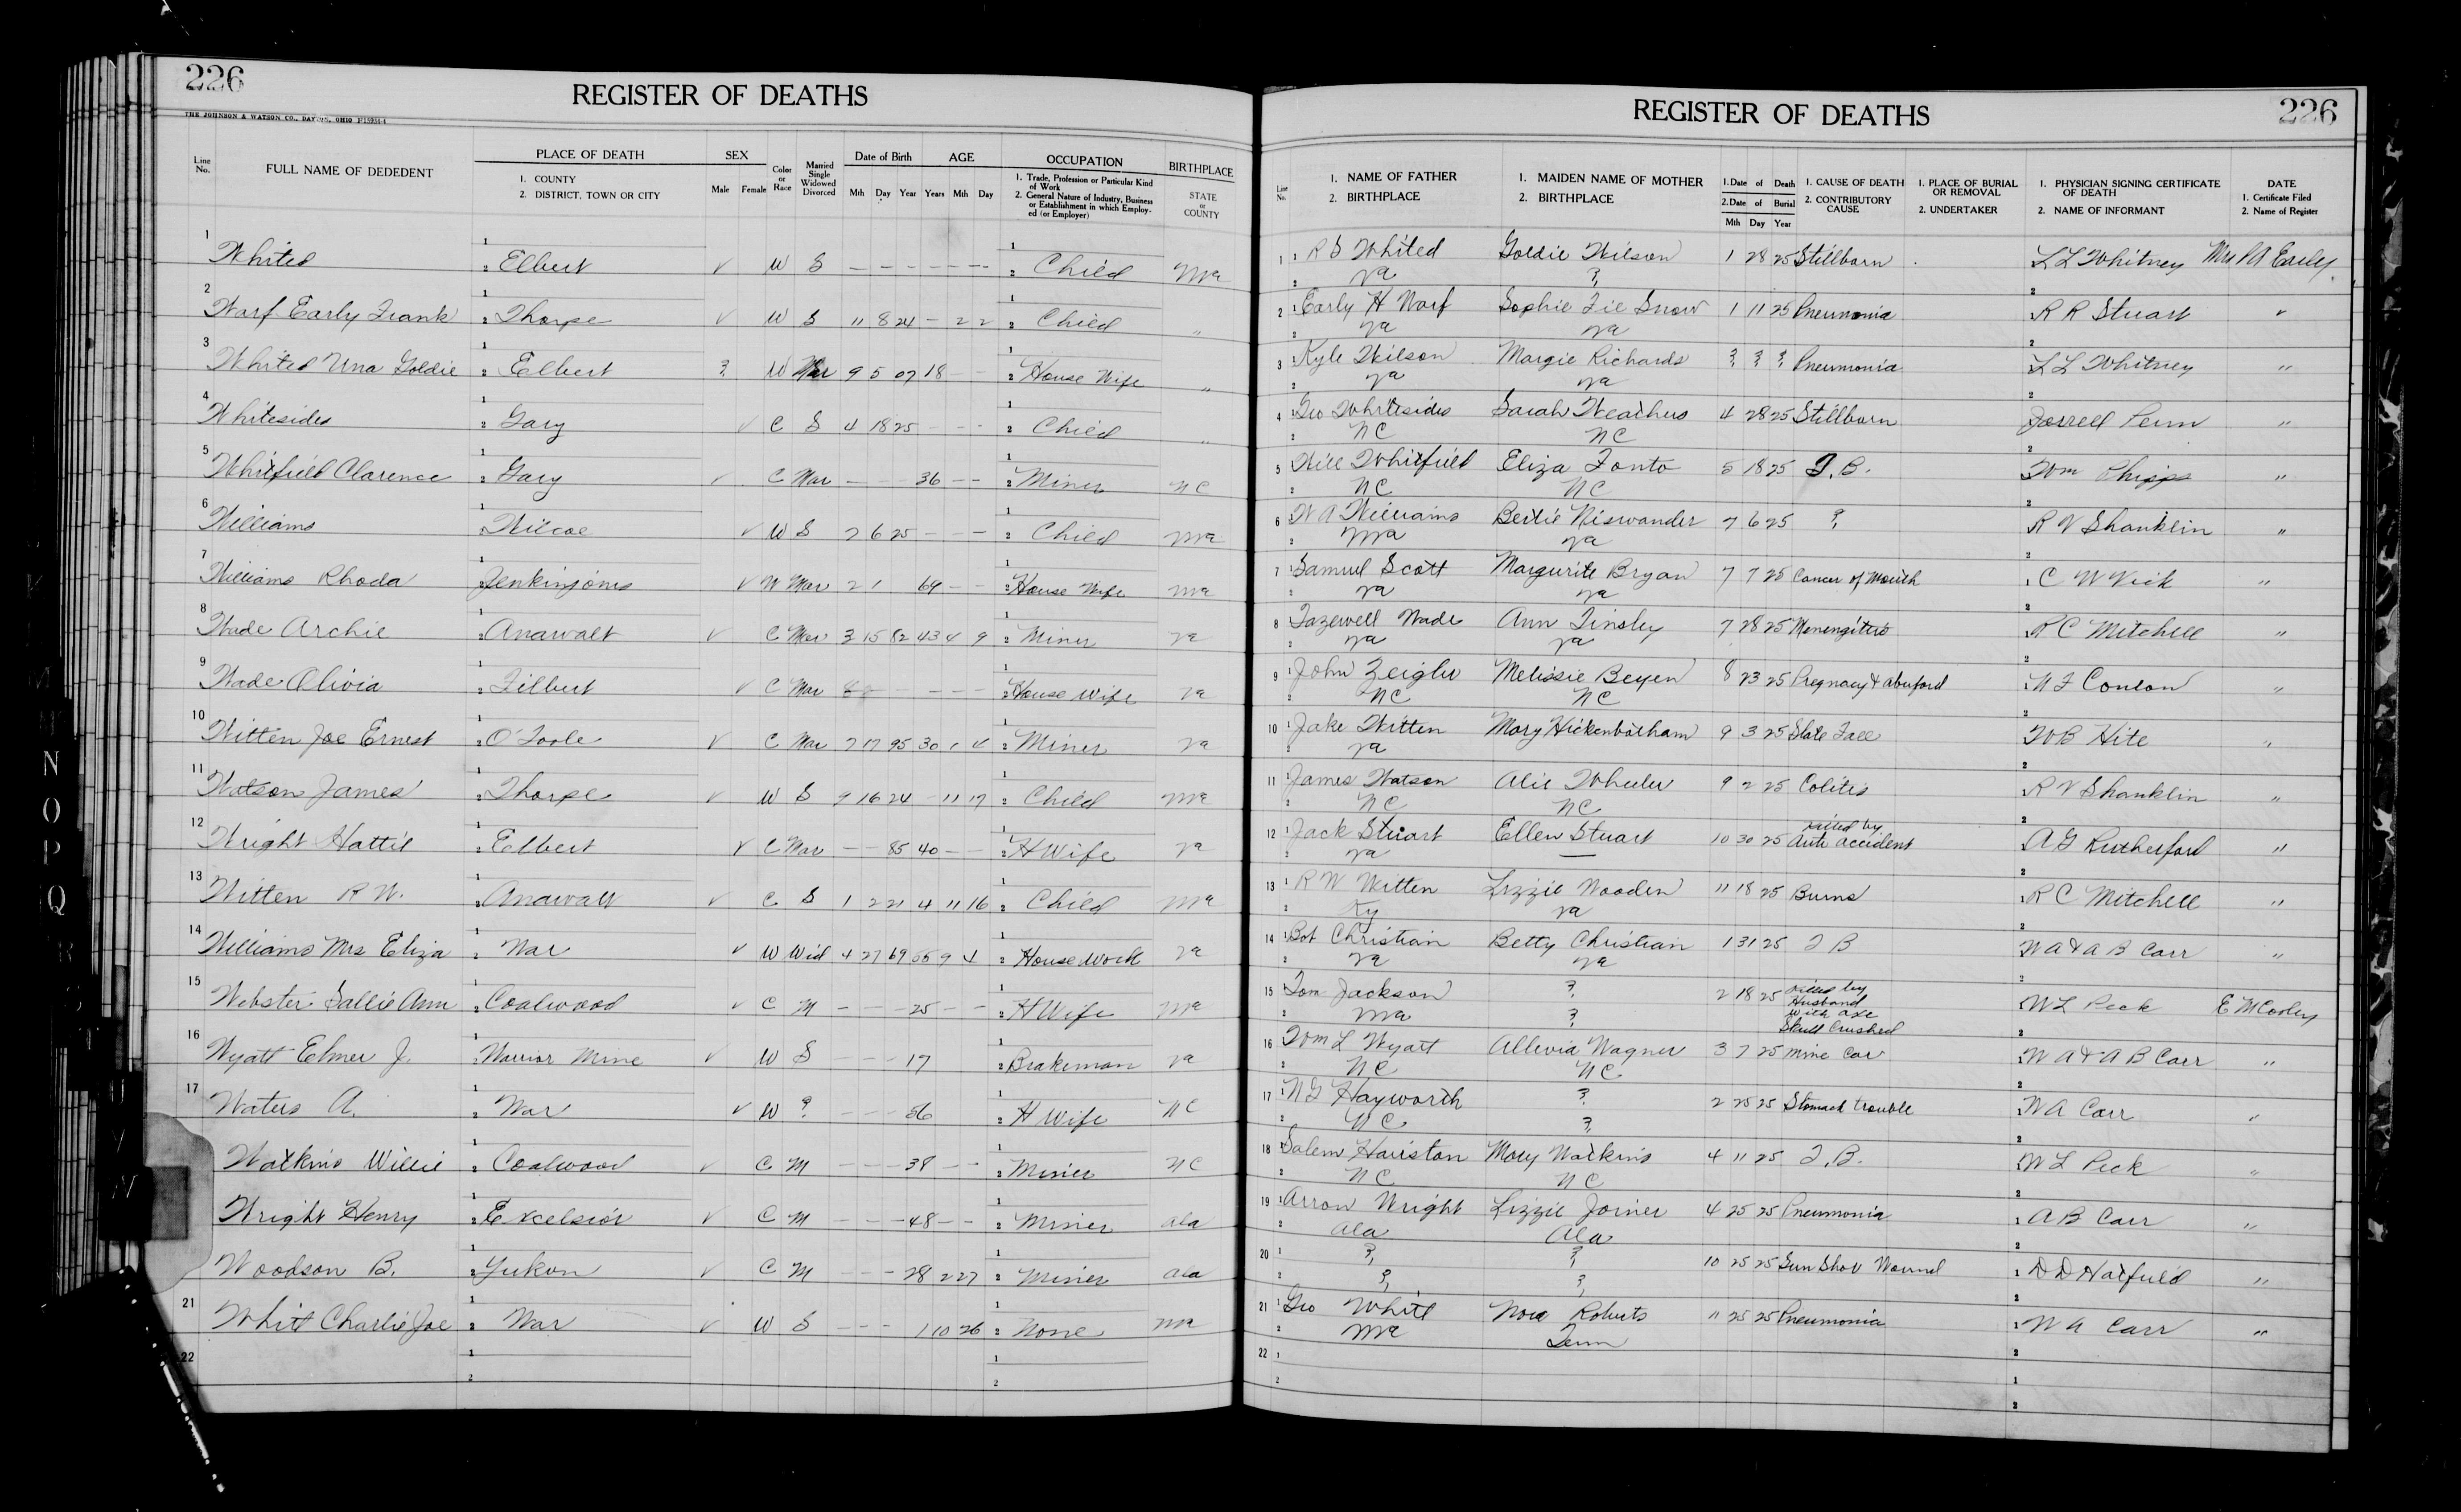 226
REGISTER OF DEATHS
THE JOHNSON & WATSON CO., DAYTON, OHIO
Line No. FULL NAME OF DEDEDENT PLACE OF DEATH 1. COUNTY 2. DISTRICT, TOWN OR CITY SEX Male Female Color or Race Married Single Widowed Divorced Date of Birth Mth Day Year AGE Years Mth Day OCCUPATION 1. Trade, Profession or Particular Kind of Work 2. General Nature of Industry, Business or Establishment in which Employed (or Employer) BIRTHPLACE STATE or COUNTY
1 Whited Elbert ✓ W S — — — — — — Child
2 Warf Early Frank Thorpe ✓ W S 11 8 24 — 2 2 Child "
3 Whited Una Goldie Elbert ? W Mar 9 5 07 18 — — House Wife "
4 Whitesides Gary ✓ C S 4 18 25 — — — Child "
5 Whitfield Clarence Gary ✓ C Mar — — — 36 — — Miner NC
6 Williams Wilcoe ✓ W S 7 6 25 — — — Child
7 Williams Rhoda Jenkinjones ✓ W Mar 2 1 69 — — House Wife
8 Wade Archie Anawalt ✓ C Mar 3 15 82 43 4 9 Miner va
9 Wade Olivia Filbert ✓ C Mar — — — — House Wife va
10 Witten Joe Ernest O'Toole ✓ C Mar 7 17 95 30 1 4 Miner va
11 Watson James Thorpe ✓ W S 9 16 24 — 11 17 Child
12 Wright Hattie Elbert ✓ C Mar — — 85 40 — — H Wife va
13 Witten R W. Anawalt ✓ C S 1 2 21 4 11 16 Child
14 Williams Mrs Eliza War ✓ W Wid 4 27 69 55 9 4 House Work va
15 Webster Sallie Ann Coalwood ✓ C M — — — 25 — — H Wife
16 Wyatt Elmer J. Warrior Mine ✓ W S — — — 17 Brakeman va
17 Waters A. War ✓ W ? — — — 56 H Wife NC
Watkins Willie Coalwood ✓ C M — — — 38 — — Miner NC
Wright Henry Excelsior ✓ C M — — — 48 — — Miner ala
Woodson B. Yukon ✓ C M — — — 28 2 27 Miner ala
21 Whitt Charlie Joe War ✓ W S — — — 1 10 26 None
22
226
REGISTER OF DEATHS
Line No. 1. NAME OF FATHER 2. BIRTHPLACE 1. MAIDEN NAME OF MOTHER 2. BIRTHPLACE 1. Date of Death 2. Date of Burial Mth Day Year 1. CAUSE OF DEATH 2. CONTRIBUTORY CAUSE 1. PLACE OF BURIAL OR REMOVAL 2. UNDERTAKER 1. PHYSICIAN SIGNING CERTIFICATE OF DEATH 2. NAME OF INFORMANT DATE 1. Certificate Filed 2. Name of Register
1 R S Whited Goldie Wilson 1 28 25 Stillborn L L Whitney Early
va ?
2 Early H Warf Sophie Snow 1 11 25 Pneumonia R R Stuart "
va va
3 Kyle Wilson Margie Richards ? ? ? Pneumonia L L Whitney "
va va
4 Geo Whitesides Sarah Weathers 4 28 25 Stillborn Jarrell Penn "
NC NC
5 Will Whitfield Eliza Fonto 5 18 25 T.B. Wm Phipps "
NC NC
6 W A Williams Bertie Niswander 7 6 25 ? R V Shanklin "
va
7 Samuel Scott Margurite Bryan 7 7 25 Cancer of Mouth C W Vick "
va va
8 Tazewell Wade Ann Tinsley 7 28 25 Menengites R C Mitchell "
va va
9 John Zeigler Melissie Beyen 8 23 25 Pregnacy & W F Conlon "
NC NC
10 Jake Witten Mary Hickenbotham 9 3 25 Slate Fall W B Hite "
va
11 James Watson Alie Wheeler 9 2 25 Colitis R V Shanklin "
NC NC
12 Jack Stuart Ellen Stuart 10 30 25 Killed by Auto accident A G Rutherford "
va —
13 R W Witten Lizzie Wooden 11 18 25 Burns R C Mitchell "
Ky va
14 Bob Christian Betty Christian 1 31 25 T B W A & A B Carr "
va va
15 Tom Jackson ? 2 18 25 Killed by Husband with axe Skull Crushed W L Peck E M Cooley
?
16 Wm L Wyatt Allevia Wagner 3 7 25 mine Car W A & A B Carr "
NC NC
17 N G Hayworth ? 2 25 25 Stomach trouble W A Carr "
N C ?
18 Salem Hairston Mary Watkins 4 11 25 T.B. W L Peck "
N C N C
19 Arron Wright Lizzie Joiner 4 25 25 Pneumonia A B Carr "
ala Ala
20 ? ? 10 25 25 Gun Shot Wound D D Hatfield "
? ?
21 Geo Whitt Nora Roberts 11 25 25 Pneumonia W A Carr "
Tenn
22